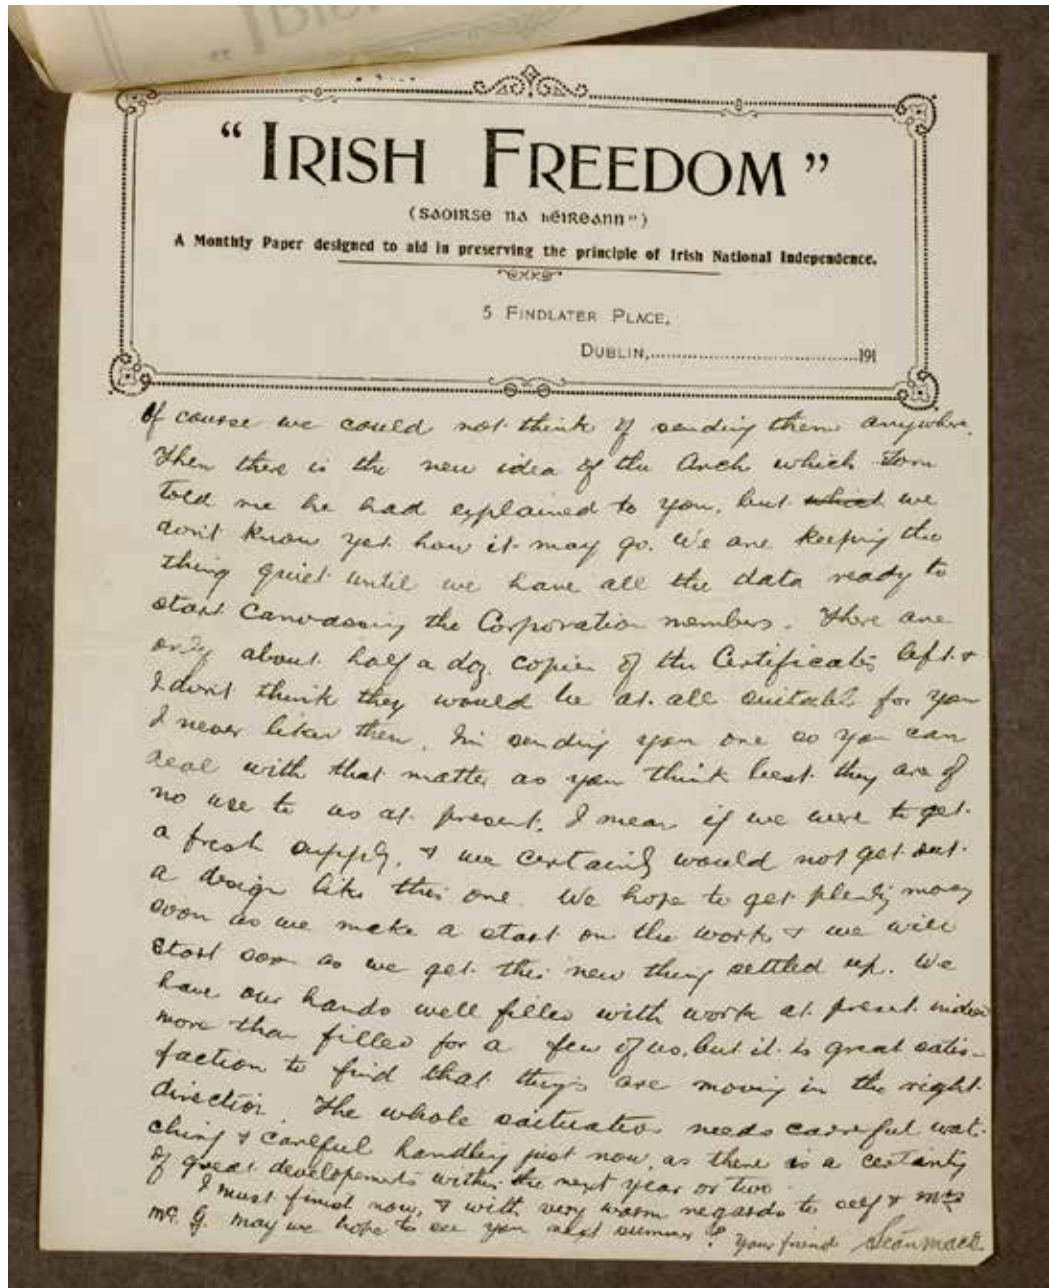 "IRISH FREEDOM"
(SAOIRSE NA hÉIREANN")
A Monthly Paper designed to aid in preserving the principle of Irish National Independence.
5 FINDLATER PLACE,
DUBLIN,..........................................191
Of course we could not think of sending them anywhere.
Then there is the new idea of the Arch which Tom
told me he had explained to you, but which we
don't know yet how it may go. We are keeping the
thing quiet until we have all the data ready to
start canvassing the Corporation members. There are
only about half a doz. copies of the Certificates left &
I don't think they would be at all suitable for you
I never liked them. I'm sending you one so you can
deal with that matter as you think best they are of
no use to us at present. I mean if we were to get
a fresh supply, & we certainly would not get out
a design like this one. We hope to get plenty money
soon as we make a start on the work & we will
start soon as we get this new thing settled up. We
have our hands well filled with work at present indeed
more than filled for a few of us, but it is great satis-
faction to find that things are moving in the right
direction. The whole situation needs careful wat-
ching & careful handling just now, as there is a certainty
of great developements within the next year or two.
I must finish now, & with very warm regards to self & Mrs
Mc. G. may we hope to see you next summer? Your friend Seán MacD.